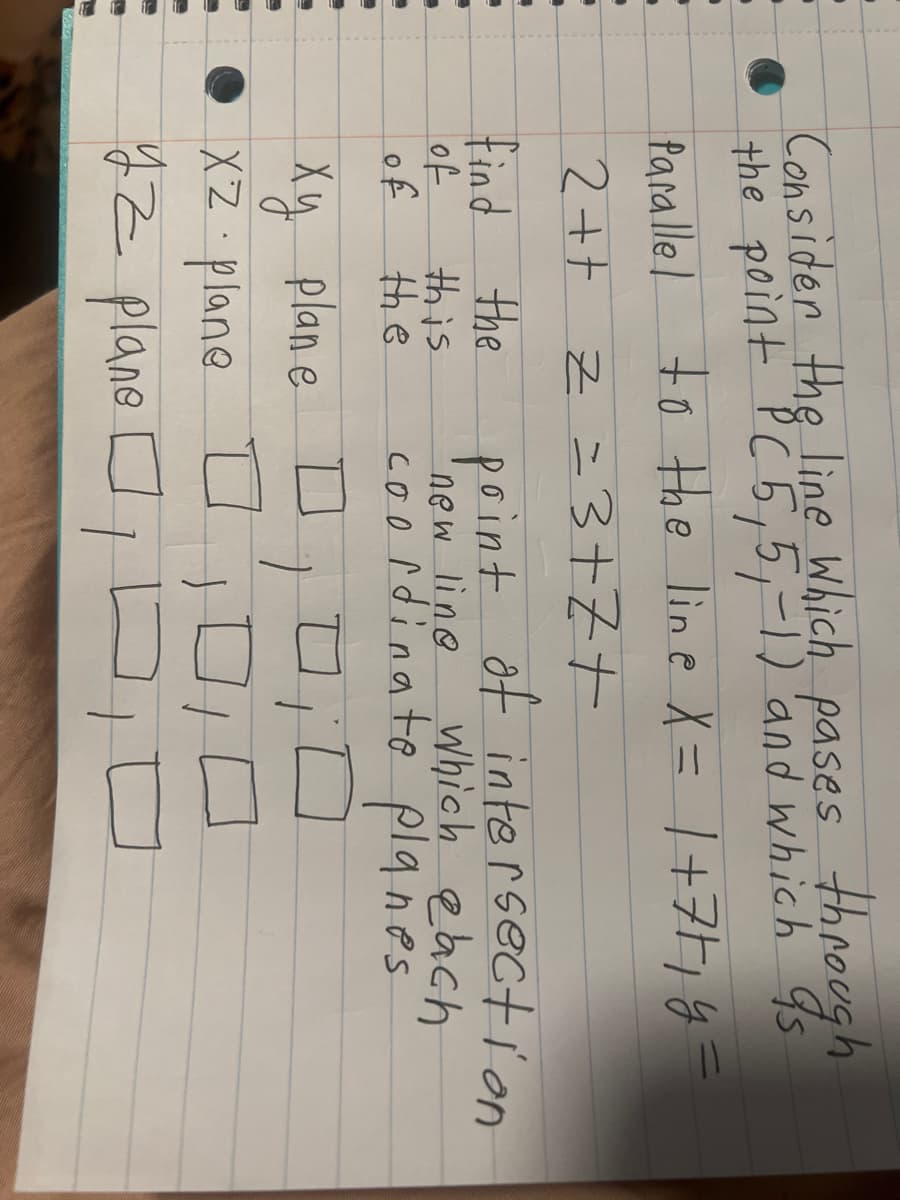 Consider the line which pases through
the point P(5,5,-1) and which is
parallel to the line X = 1+7t, y =
2+t z = 3+2t
find the point of intersection
of this new line which each
of the coordinate planes
xy plane □, □, □
xz. plane □, □, □
yz plane □, □, □